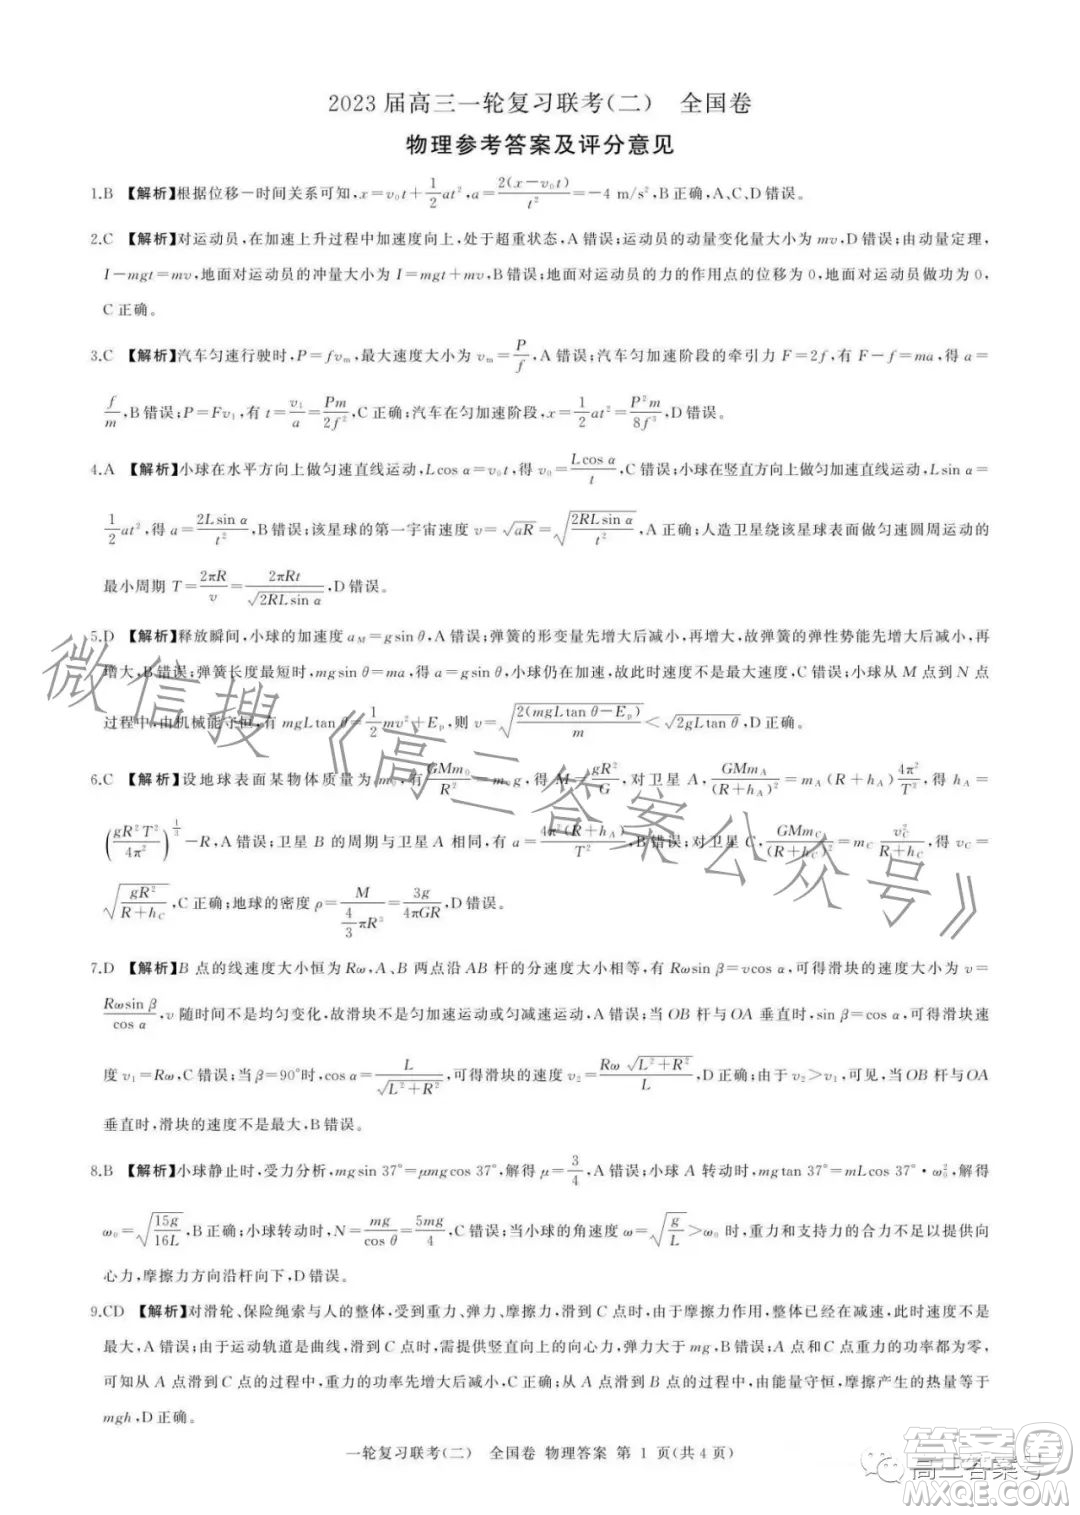 2023 届高三一轮复习联考(二) 全国卷
物理参考答案及评分意见
1.B 【解析】根据位移一时间关系可知,x=v₀t+1/2 at²,a=2(x-v₀t)/t²=-4 m/s²,B正确,A、C、D错误。
2.C 【解析】对运动员,在加速上升过程中加速度向上,处于超重状态,A错误;运动员的动量变化量大小为mv,D错误;由动量定理,
I-mgt=mv,地面对运动员的冲量大小为I=mgt+mv,B错误;地面对运动员的力的作用点的位移为0,地面对运动员做功为0,
C正确。
3.C 【解析】汽车匀速行驶时,P=fvₘ,最大速度大小为vₘ=P/f,A错误;汽车匀加速阶段的牵引力F=2f,有F-f=ma,得a=
f/m,B错误;P=Fv₁,有t=v₁/a=Pm/2f²,C正确;汽车在匀加速阶段,x=1/2 at²=P²m/8f³,D错误。
4.A 【解析】小球在水平方向上做匀速直线运动,Lcos α=v₀t,得v₀=Lcos α/t,C错误;小球在竖直方向上做匀加速直线运动,Lsin α=
1/2 at²,得a=2Lsin α/t²,B错误;该星球的第一宇宙速度v=√(aR)=√(2RLsin α/t²),A正确;人造卫星绕该星球表面做匀速圆周运动的
最小周期T=2πR/v=2πRt/√(2RLsin α),D错误。
5.D 【解析】释放瞬间,小球的加速度a_M=gsin θ,A错误;弹簧的形变量先增大后减小,再增大,故弹簧的弹性势能先增大后减小,再
增大,B错误;弹簧长度最短时,mgsin θ=ma,得a=gsin θ,小球仍在加速,故此时速度不是最大速度,C错误;小球从M点到N点
过程中,由机械能守恒,有mgLtan θ=1/2 mv²+Eₚ,则v=√(2(mgLtan θ-Eₚ)/m)<√(2gLtan θ),D正确。
6.C 【解析】设地球表面某物体质量为m₀,有GMm₀/R²=m₀g,得M=gR²/G,对卫星A,GMm_A/(R+h_A)²=m_A(R+h_A)4π²/T²,得h_A=
(gR²T²/4π²)^(1/3)-R,A错误;卫星B的周期与卫星A相同,有a=4π²(R+h_A)/T²,B错误;对卫星C,GMm_C/(R+h_C)²=m_C v_C²/(R+h_C),得v_C=
√(gR²/(R+h_C)),C正确;地球的密度ρ=M/(4/3 πR³)=3g/4πGR,D错误。
7.D 【解析】B点的线速度大小恒为Rω,A、B两点沿AB杆的分速度大小相等,有Rωsin β=vcos α,可得滑块的速度大小为v=
Rωsin β/cos α,v随时间不是均匀变化,故滑块不是匀加速运动或匀减速运动,A错误;当OB杆与OA垂直时,sin β=cos α,可得滑块速
度v₁=Rω,C错误;当β=90°时,cos α=L/√(L²+R²),可得滑块的速度v₂=Rω√(L²+R²)/L,D正确;由于v₂>v₁,可见,当OB杆与OA
垂直时,滑块的速度不是最大,B错误。
8.B 【解析】小球静止时,受力分析,mgsin 37°=μmgcos 37°,解得μ=3/4,A错误;小球A转动时,mgtan 37°=mLcos 37°·ω₀²,解得
ω₀=√(15g/16L),B正确;小球转动时,N=mg/cos θ=5mg/4,C错误;当小球的角速度ω=√(g/L)>ω₀时,重力和支持力的合力不足以提供向
心力,摩擦力方向沿杆向下,D错误。
9.CD 【解析】对滑轮、保险绳索与人的整体,受到重力、弹力、摩擦力,滑到C点时,由于摩擦力作用,整体已经在减速,此时速度不是
最大,A错误;由于运动轨道是曲线,滑到C点时,需提供竖直向上的向心力,弹力大于mg,B错误;A点和C点重力的功率都为零,
可知从A点滑到C点的过程中,重力的功率先增大后减小,C正确;从A点滑到B点的过程中,由能量守恒,摩擦产生的热量等于
mgh,D正确。
一轮复习联考(二) 全国卷 物理答案 第 1 页(共4页)
微信搜《高三答案公众号》
高三答案号
答案卷
MXQE.COM